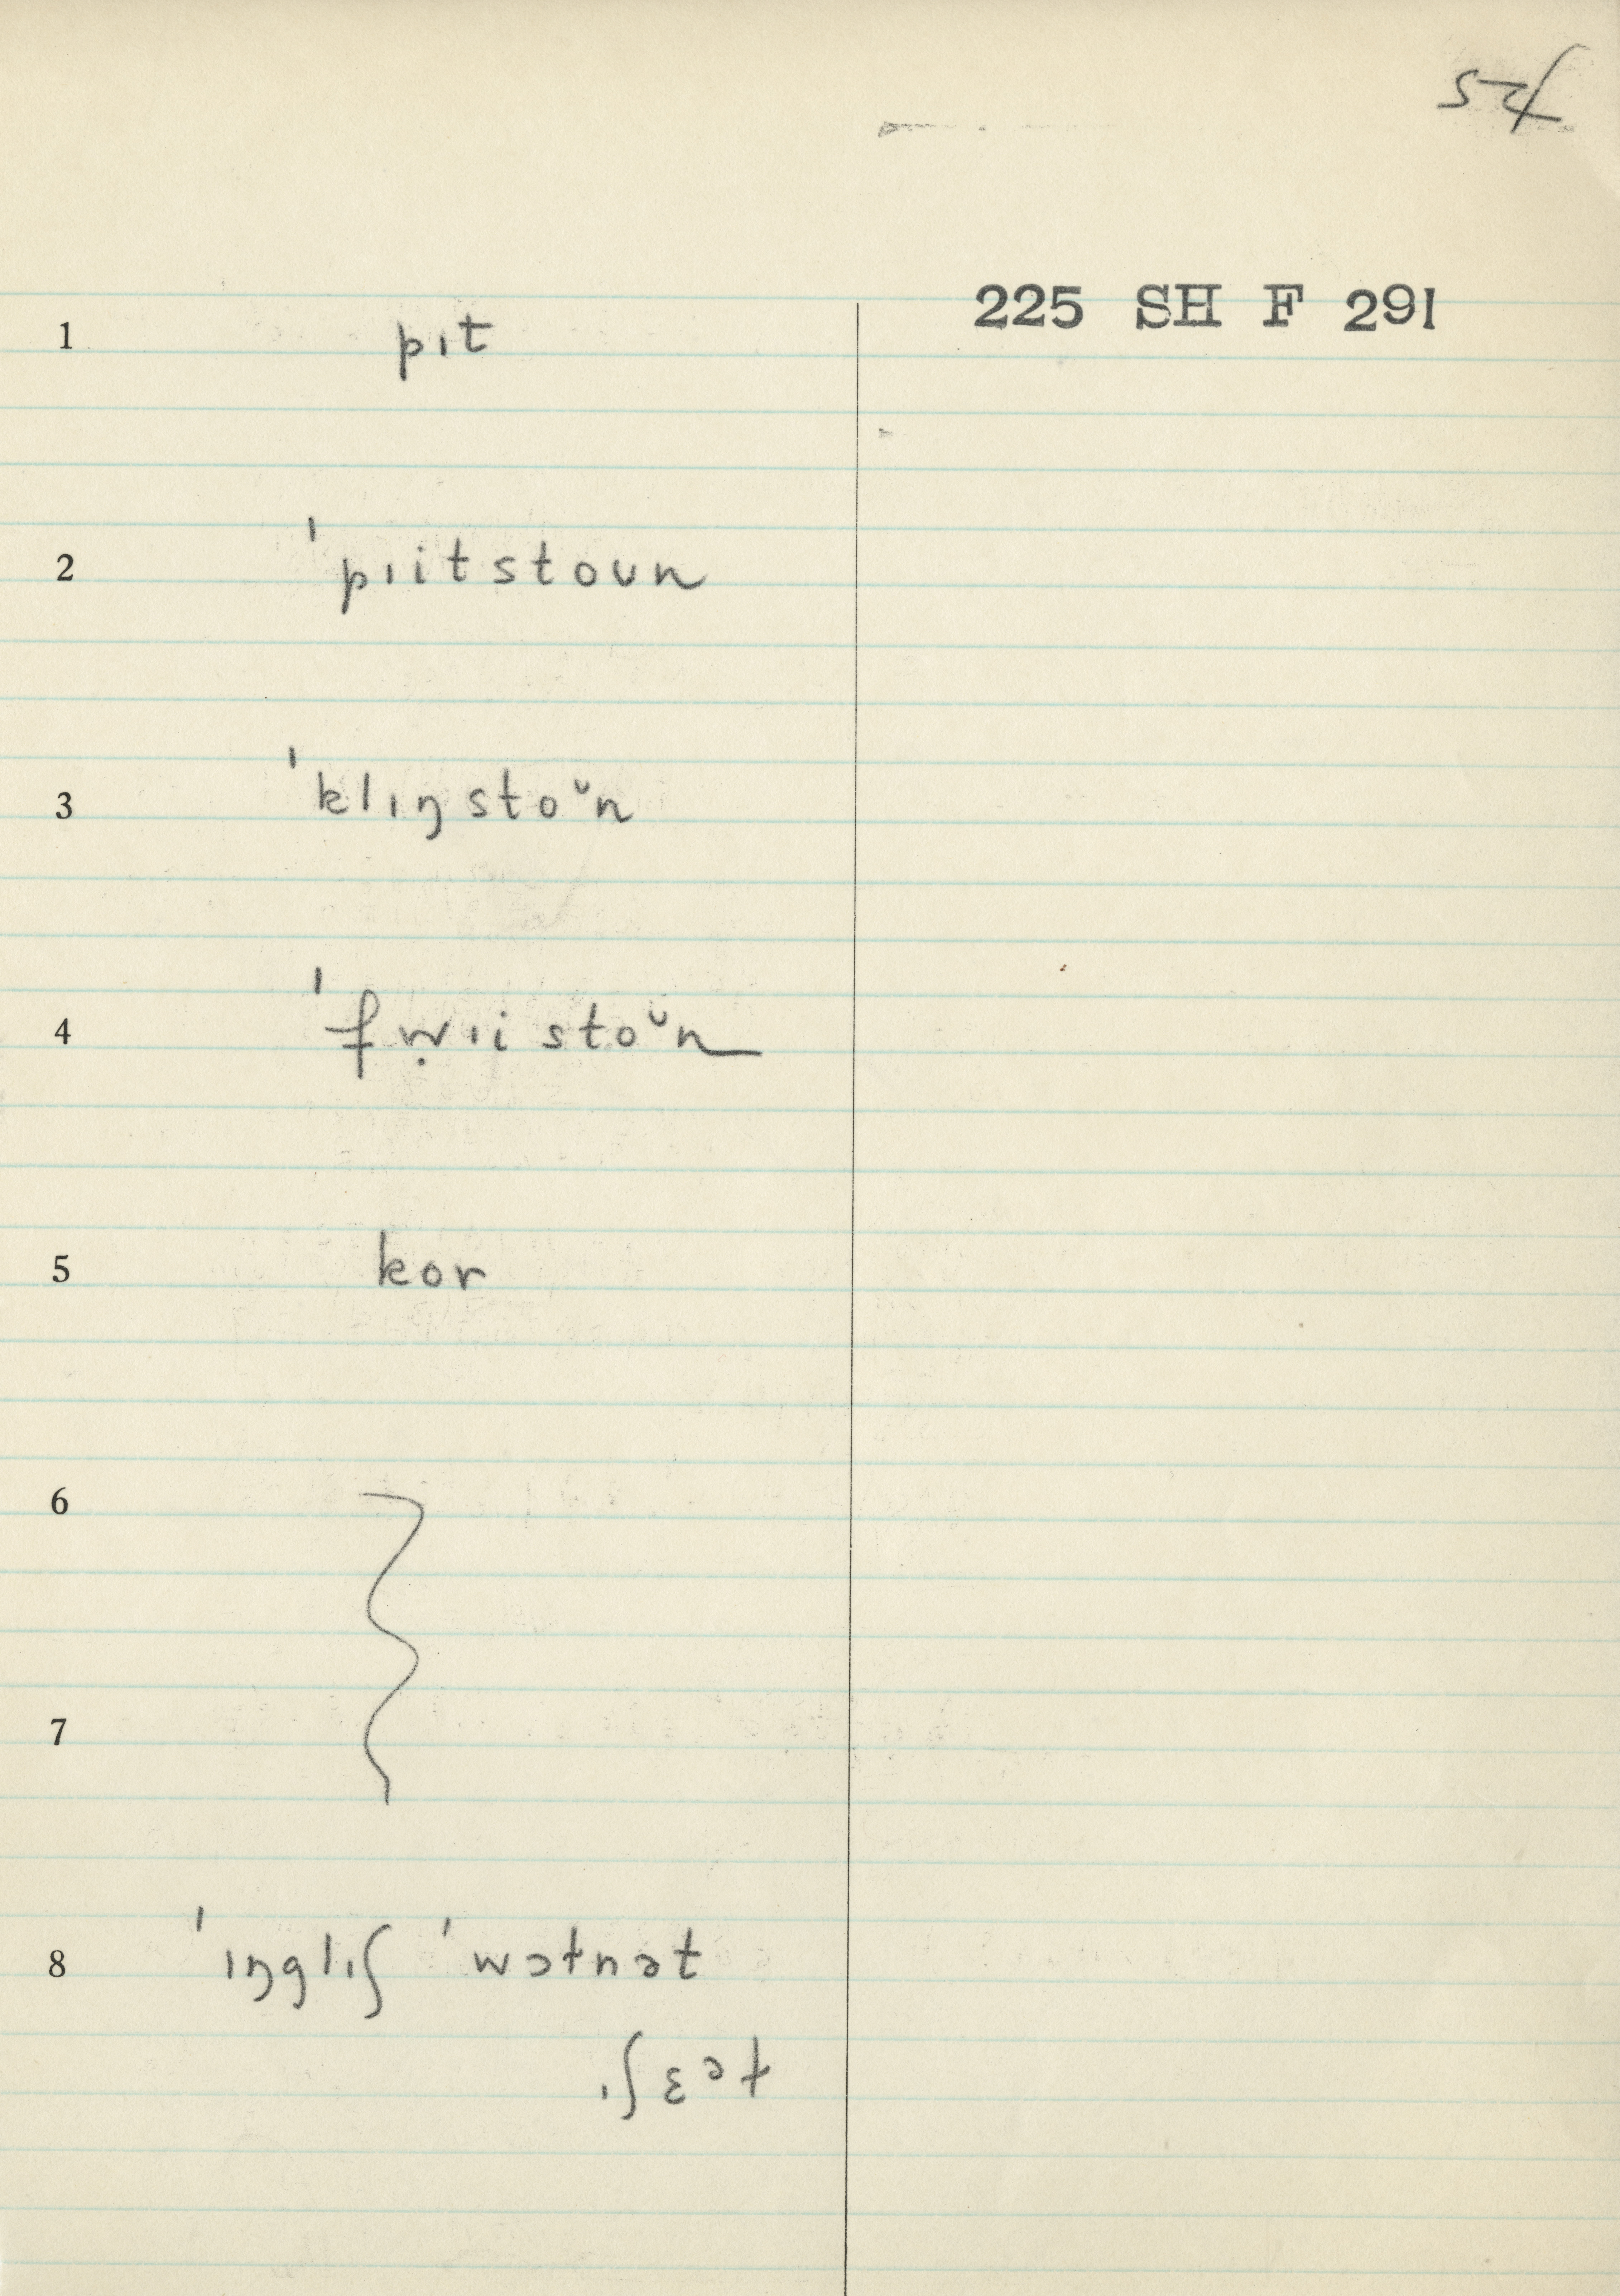 54
225 SH F 291
1 pɪt
2 ˈpɪitstoun
3 ˈklɪŋstoᵘn
4 ˈfẉɪistoᵘn
5 kor
6
7
8 ˈɪŋglɪʃ ˈwɔɫnət
ɪʃɛəɫ